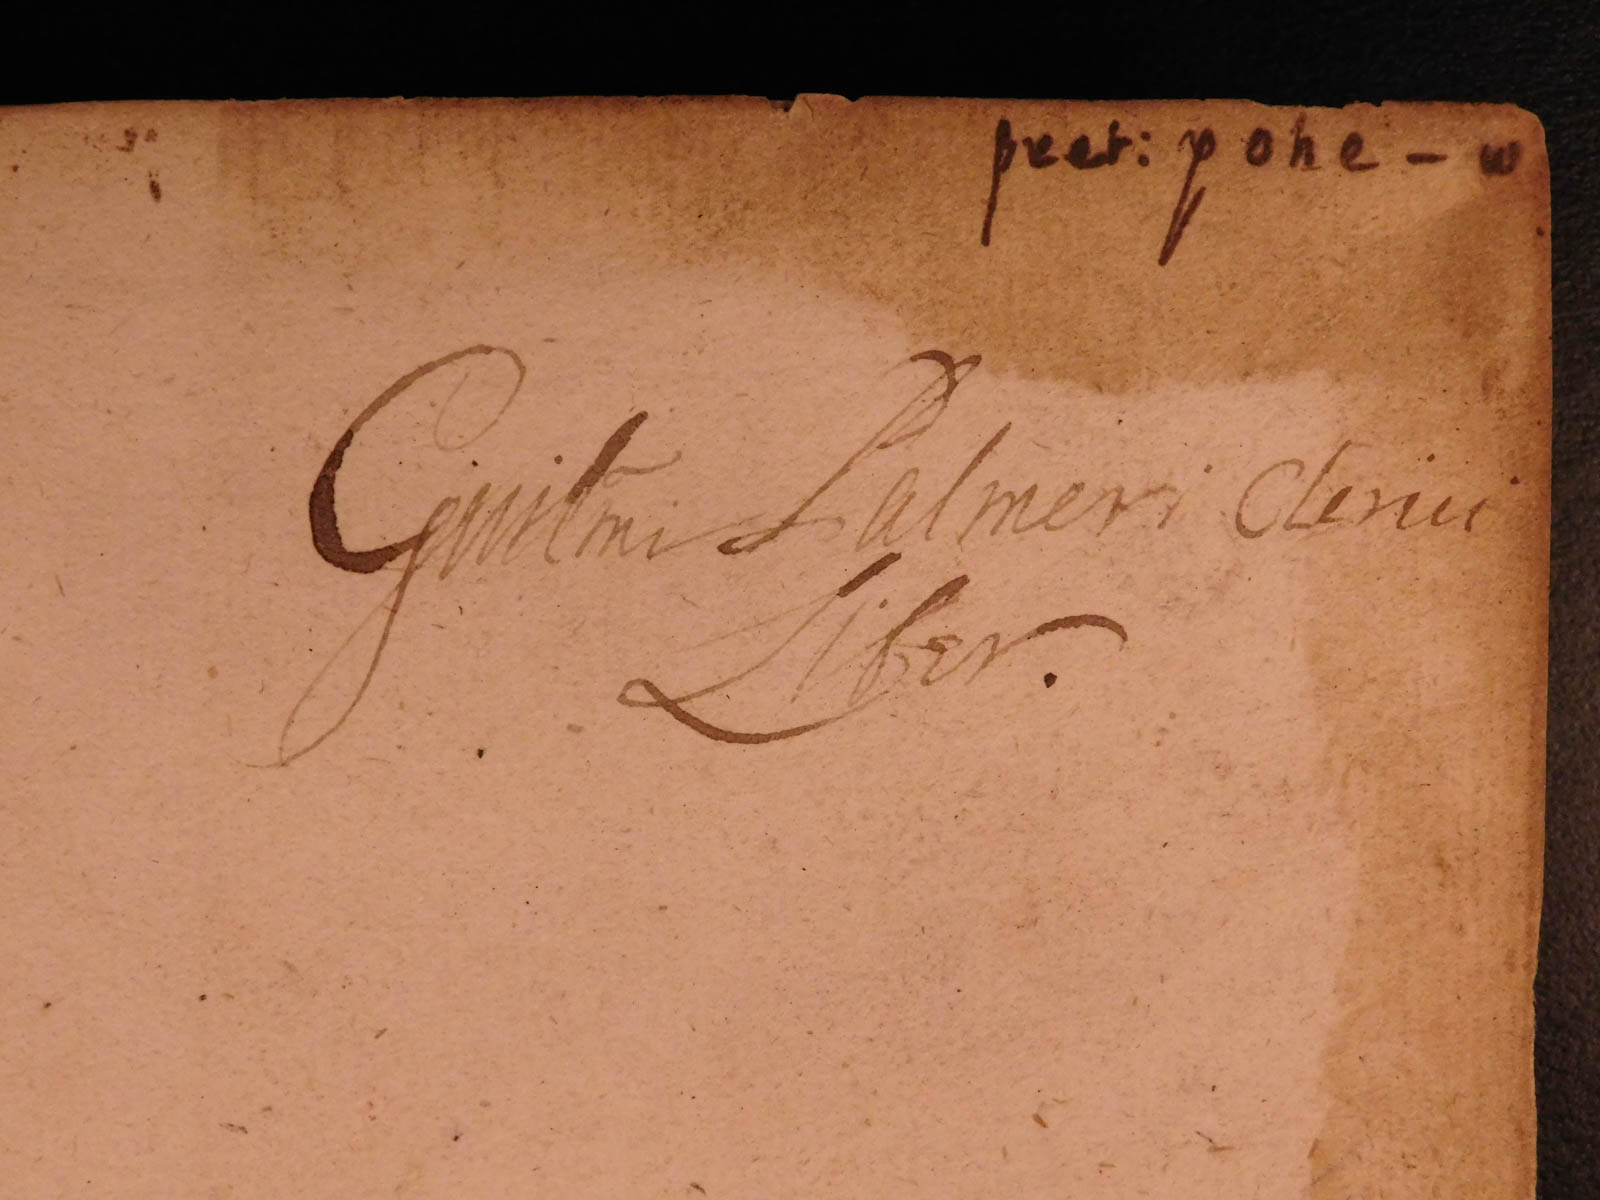 pret: pohe - w
Guilm̃i Palmeri Clerici
Liber.